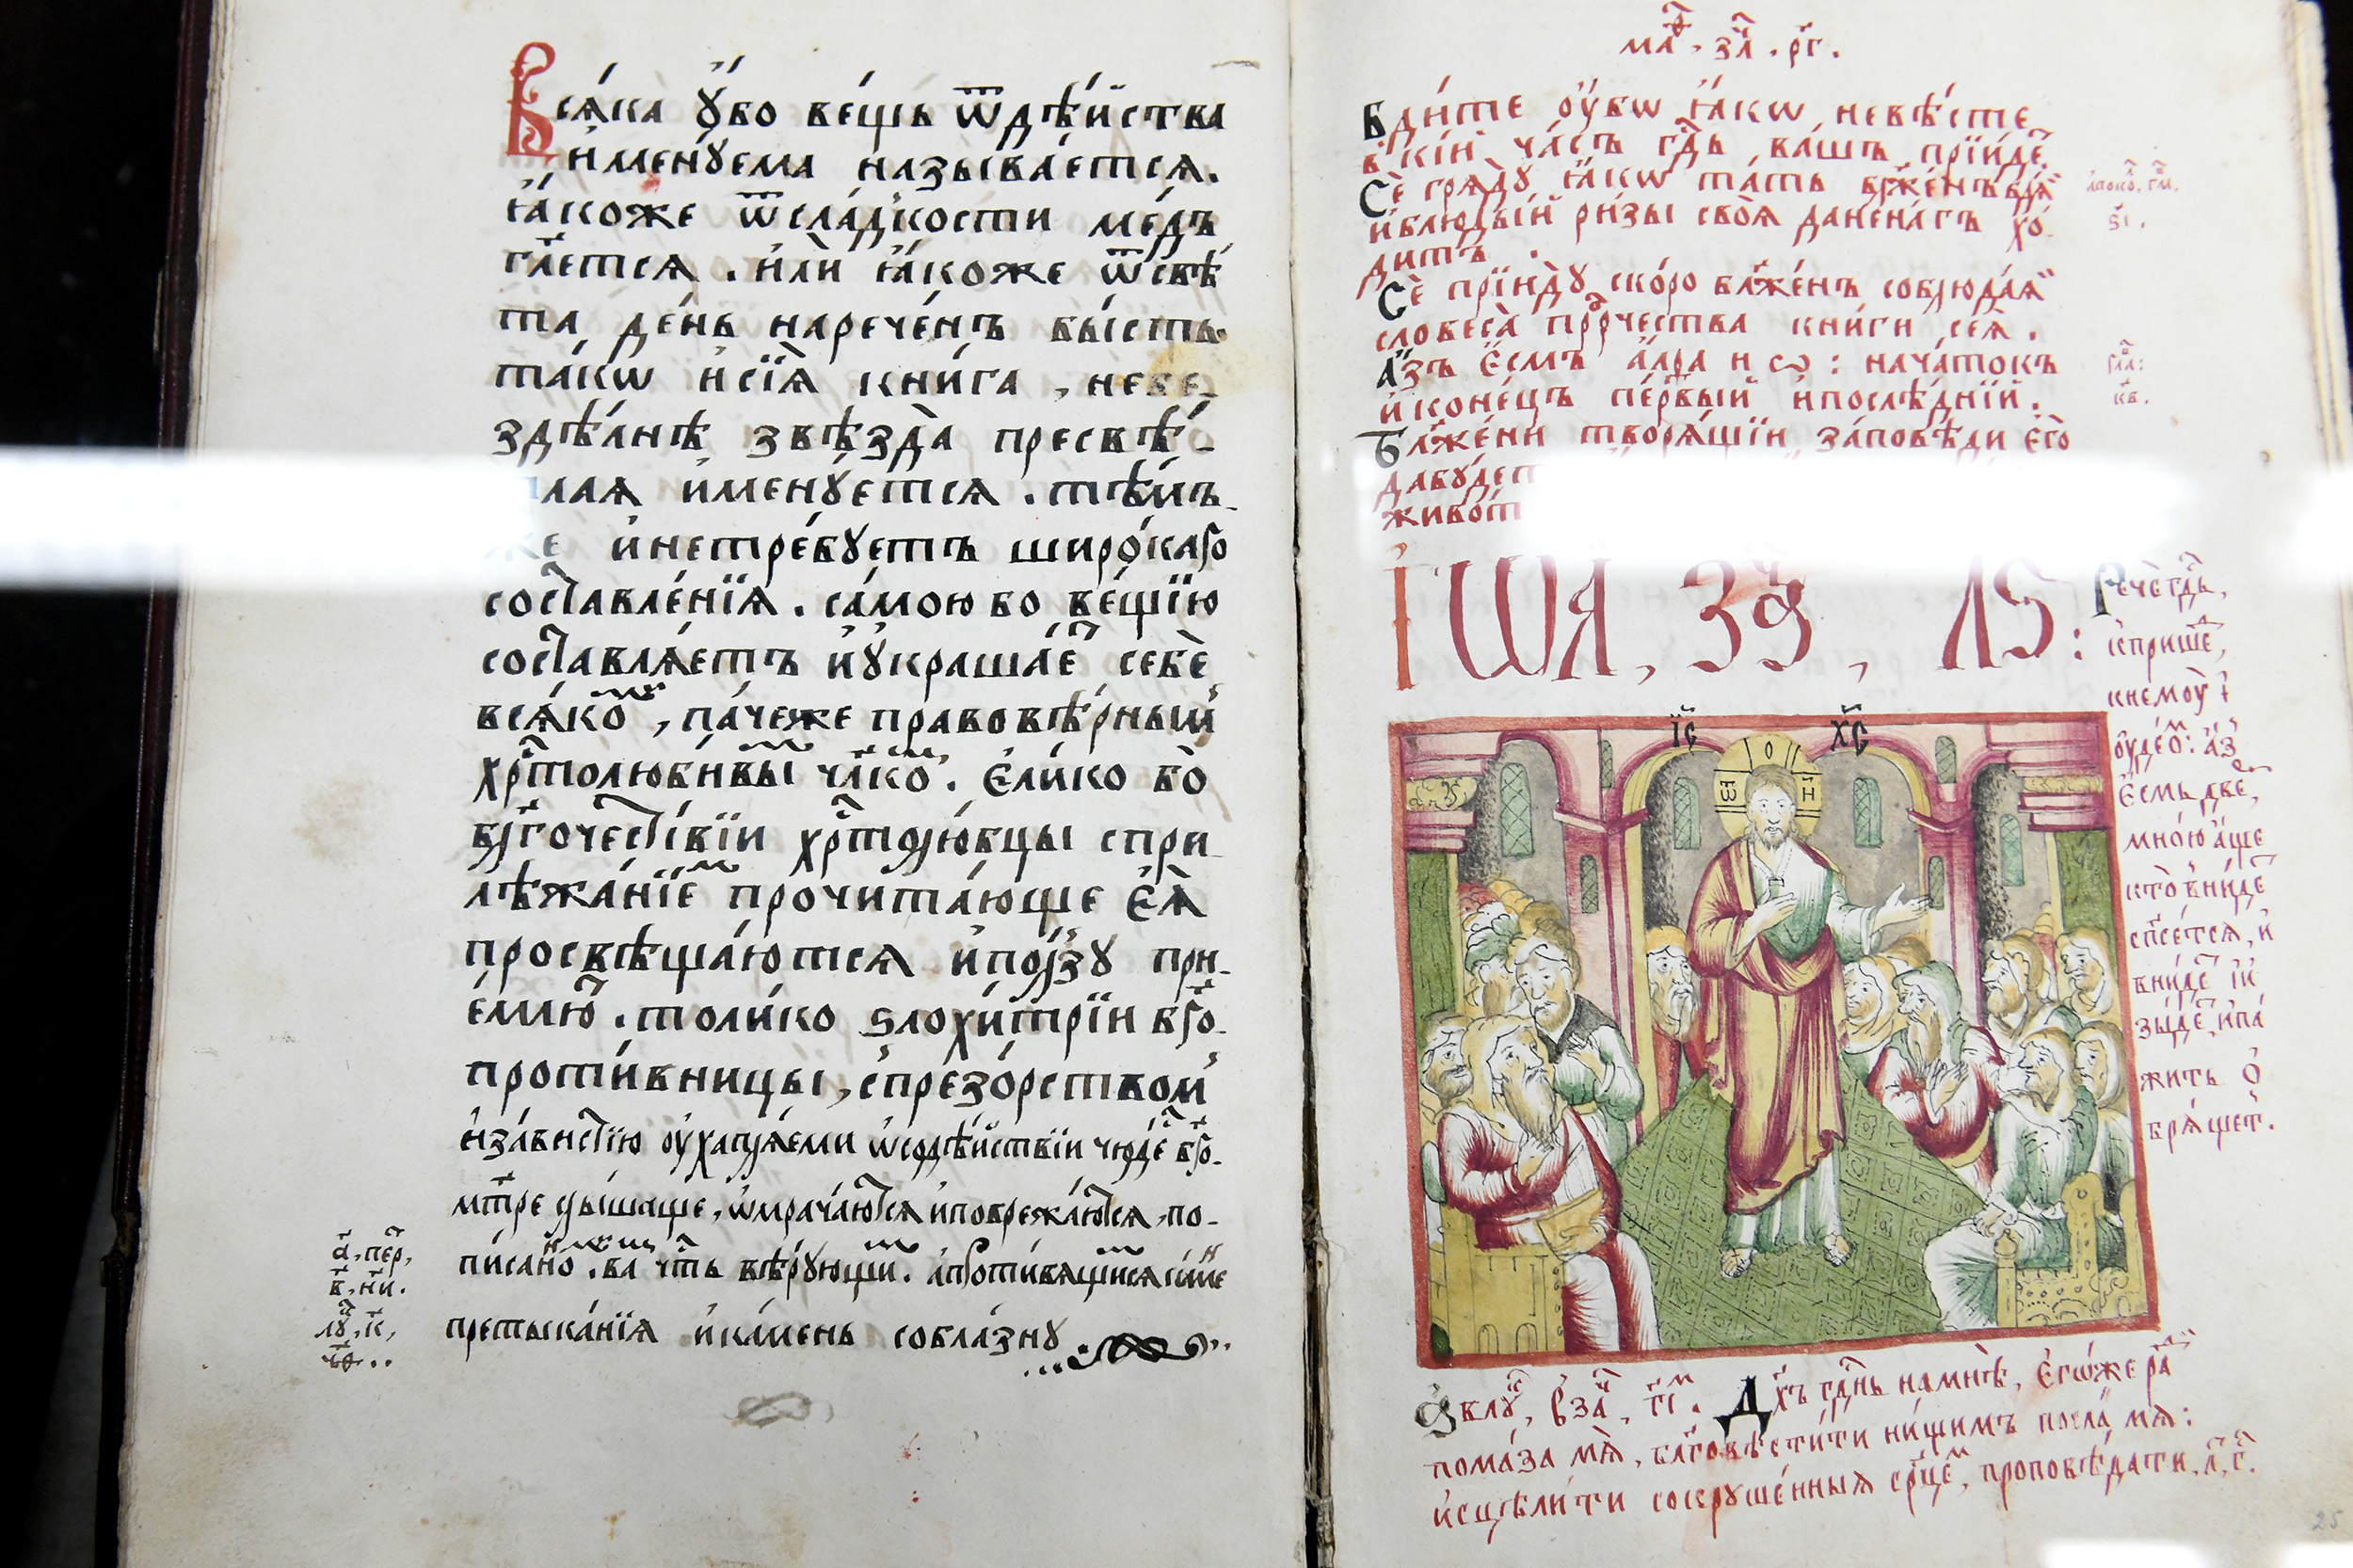 Всѧ́ка ᲂу҆́бо ве́щь ѿдѣ́йства
и҆менꙋ́ема называ́етсѧ.
ꙗ҆́коже ѿсла́дкости ме́дъ
гл҃етсѧ. и҆лѝ ꙗ҆́коже ѿсвѣ́
та де́нь нарече́нъ бы́сть.
та́кѡ и҆сїѧ̀ кни́га, небе_
здѣ́лнѣ звѣзда̀ пресвѣ́_
лаѧ и҆менꙋ́етсѧ. тѣ́мъ_
же и҆нетре́бꙋетъ широ́каго
составле́нїѧ. са́мою бо ве́щїю
составлѧ́етъ и҆ᲂукраша́е себѐ
всѧ́комꙋ, па́чеже правовѣ́рнымъ
хрⷭ҇толюби́вымъ чл҃комъ. Е҆ли́ко бо
бл҃гочести́вїи хрⷭ҇толю́бцы спри
лѣжа́нїемъ прочита́юще є҆ѧ̀
просвѣща́ютсѧ и҆по́лзꙋ при_
е́млютъ. толи́ко ѕлохи́трїи бг҃о_
проти́вницы, спрезо́рствомъ
и҆за́вистїю ᲂу҆хапла́еми ѡ҆содѣ́йствїи чюде́съ бг҃о_
мт҃ре слы́шаще, ѡ҆мрача́ютсѧ и҆повреж̾а́ютсѧ, по_
пи́санномꙋ. ва́мъ че́сть вѣ́рꙋющимъ. а҆проти́вѧщимсѧ ка́мень
претыка́нїѧ и҆ка́мень собла́знꙋ
а҃, пер,
в҃, н҃и.
лꙋ, к҃,
ч҃ѳ..
маⷴ҇, заⷱ҇, р҃г.
Бди́те ᲂу҆́бѡ ꙗ҆́кѡ невѣ́сте
в̾кі́й ча́съ гдⷭ҇ь ва́шъ прїи́детъ
Сѐ грѧдꙋ̀ ꙗ҆́кѡ та́ть бл҃же́нъ бдѧ́й
и҆блюды́й ри́зы своѧ̀ дане на́гъ хо́
дитъ.
апока́, гла́.
ѕ҃і.
Сѐ прїидꙋ̀ ско́ро блаже́нъ соблюда́ѧй
словеса̀ прⷪ҇ро́чества кни́ги сеѧ̀.
А҆́зъ є҆́смь а҆́лфа и ѡ: нача́токъ
и҆коне́цъ пе́рвый и҆послѣ́днїй.
гла:
к҃в.
Блаже́ни творѧ́щїи за́повѣди є҆гѡ̀
дабꙋ́дет
живо́т
І҆ѡа, заⷱ҇, л҃ѕ:
Речѐ гдⷭ҇ь,
кнемꙋ̀ і҆
ᲂу҆де́омъ: а҆́зъ
є҆́смь две́рь,
мно́ю а҆́ще
кто̀ вни́детъ
спⷭ҇е́тсѧ, и҆
вни́детъ и҆и҆
зы́детъ, и҆па́
жить ѻ
брѧ́щетъ.
І҆С ХС
Ѿ Ѻ Н
ѿ лꙋ, заⷱ҇, г҃і. Дх҃ъ гдⷭ҇нь на мнѣ̀, є҆гѡ́же ра́
пома́за мѧ̀, благовѣсти́ти ни́щимъ посла́ мѧ:
и҆сцѣли́ти сокрꙋше́нныѧ се́рдцемъ, проповѣ́дати, л, с.
25